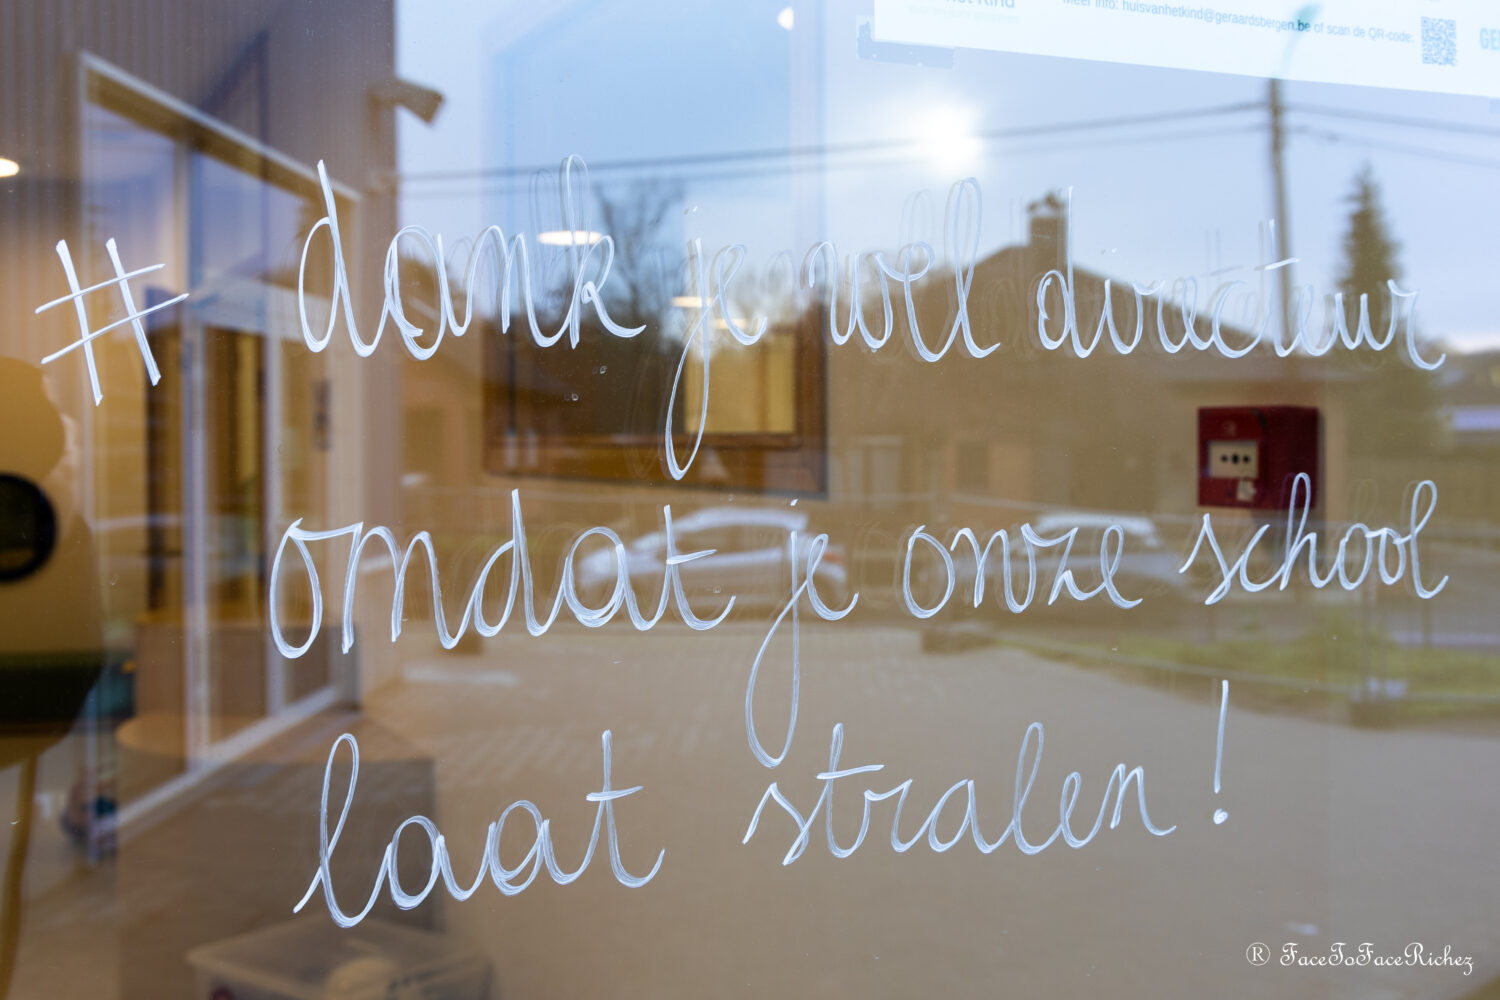 Meer info: huisvanhetkind@geraardsbergen.be of scan de QR-code:
# dank je wel directeur
omdat je onze school
laat stralen!
® FaceToFaceRichez